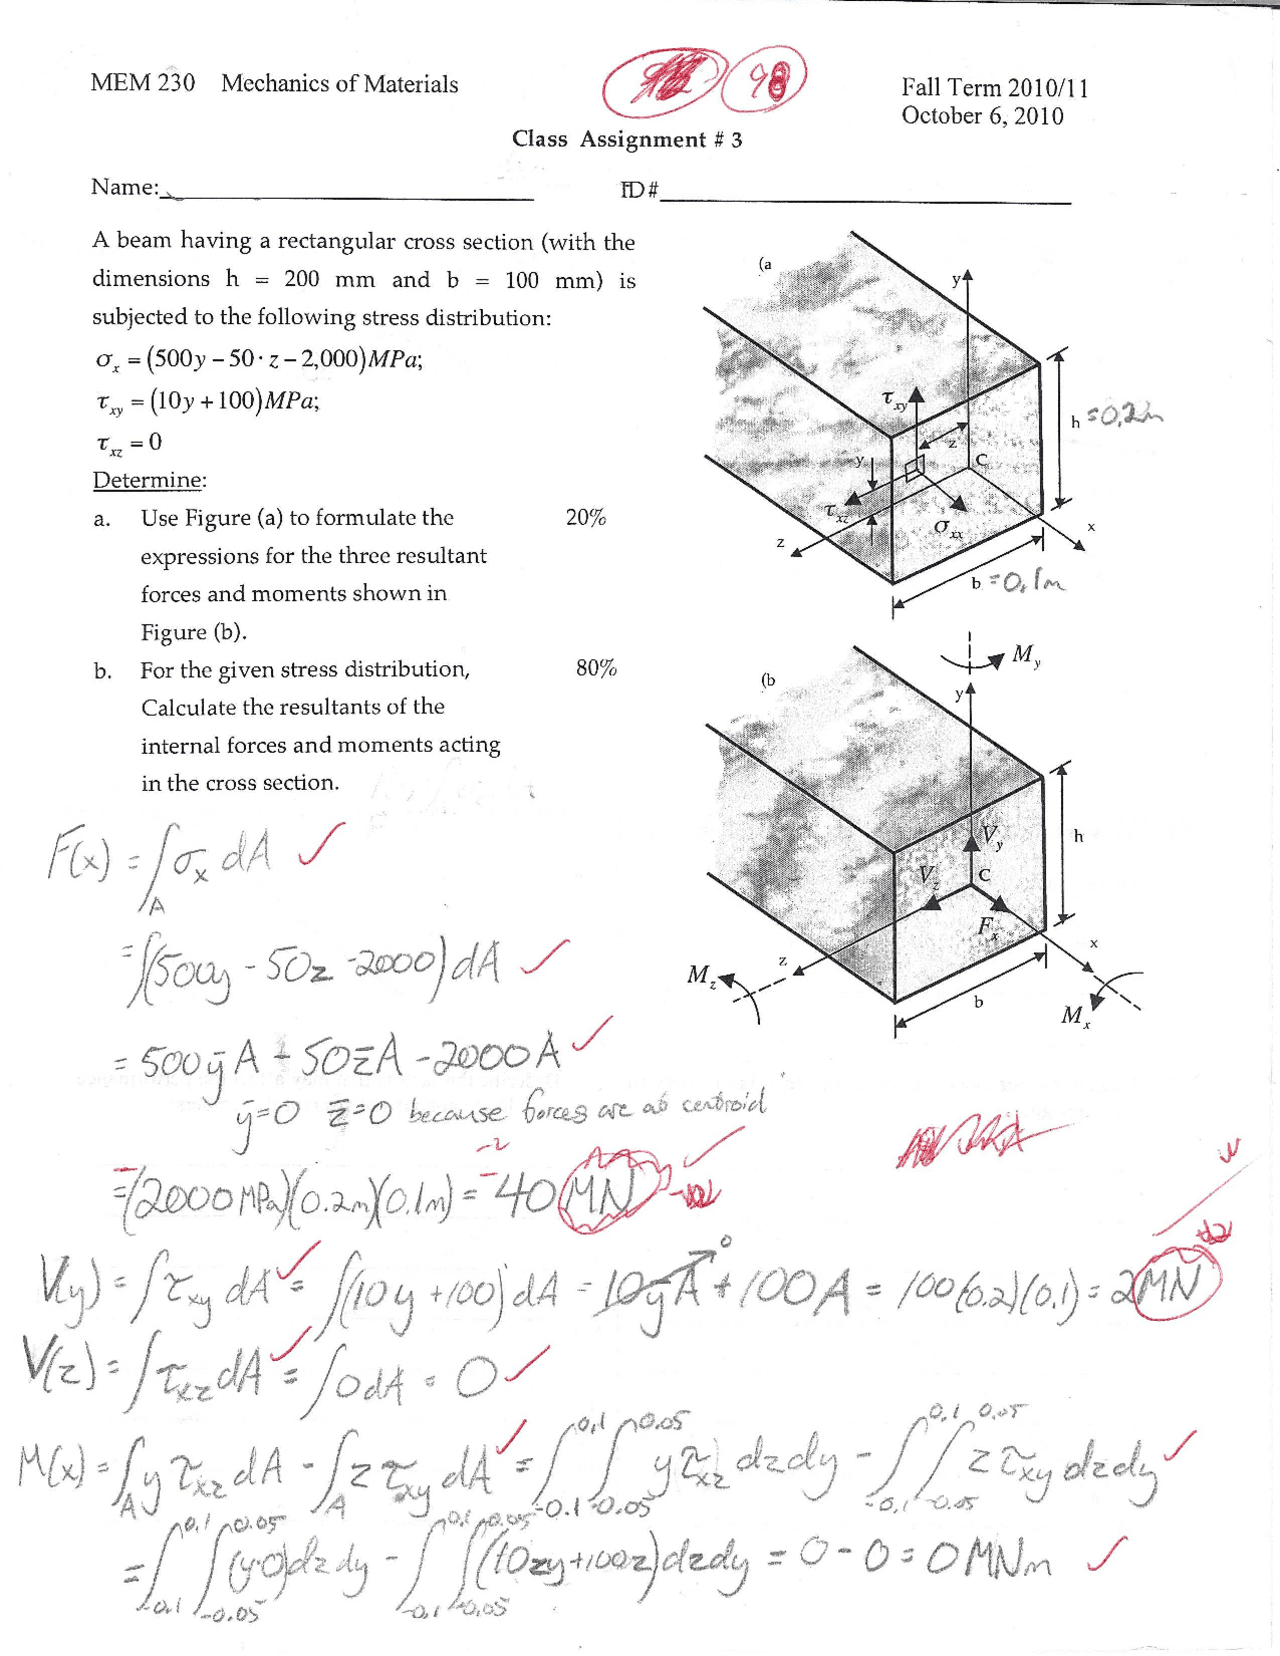 MEM 230 Mechanics of Materials
98
Fall Term 2010/11
October 6, 2010
Class Assignment # 3
Name:
ID#
A beam having a rectangular cross section (with the
dimensions h = 200 mm and b = 100 mm) is
subjected to the following stress distribution:
σx = (500y – 50· z – 2,000)MPa;
τxy = (10y + 100)MPa;
τxz = 0
Determine:
a. Use Figure (a) to formulate the 20%
expressions for the three resultant
forces and moments shown in
Figure (b).
b. For the given stress distribution, 80%
Calculate the resultants of the
internal forces and moments acting
in the cross section.
(a
y
τxy
h =0.2m
z
y
C
τxz
σxx
x
z
b =0.1m
My
(b
y
Vy
h
Vz
C
Fx
x
z
Mz
b
Mx
F(x) = ∫A σx dA ✓
= ∫(500y - 50z - 2000) dA ✓
= 500ȳA + 50z̄A - 2000A ✓
ȳ=0 z̄=0 because forces are at centroid
-2
= -(2000MPa)(0.2m)(0.1m) = -40MN ✓
V(y) = ∫τxy dA ✓ = ∫(10y + 100) dA = 10ȳA→0 + 100A = 100(0.2)(0.1) = 2MN
V(z) = ∫τxz dA ✓ = ∫0dA = 0 ✓
M(x) = ∫A yτxz dA - ∫A zτxy dA ✓ = ∫-0.1^0.1 ∫-0.05^0.05 yτxz dzdy - ∫-0.1^0.1 ∫-0.05^0.05 zτxy dzdy ✓
= ∫-0.1^0.1 ∫-0.05^0.05 (y·0)dzdy - ∫-0.1^0.1 ∫-0.05^0.05 (10zy+100z)dzdy = 0 - 0 = 0MNm ✓